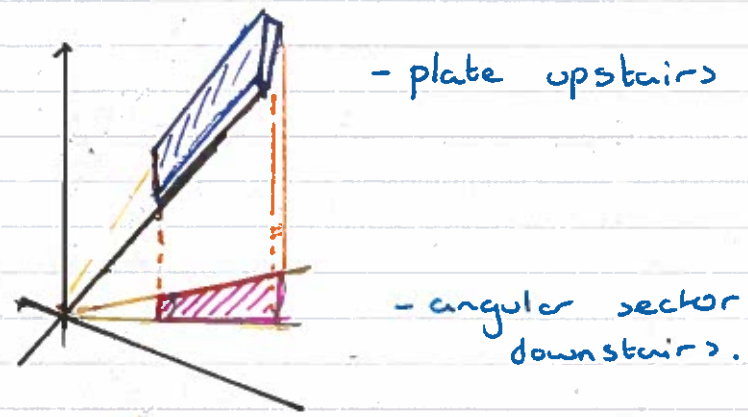 - plate upstairs
- angular sector
downstairs.